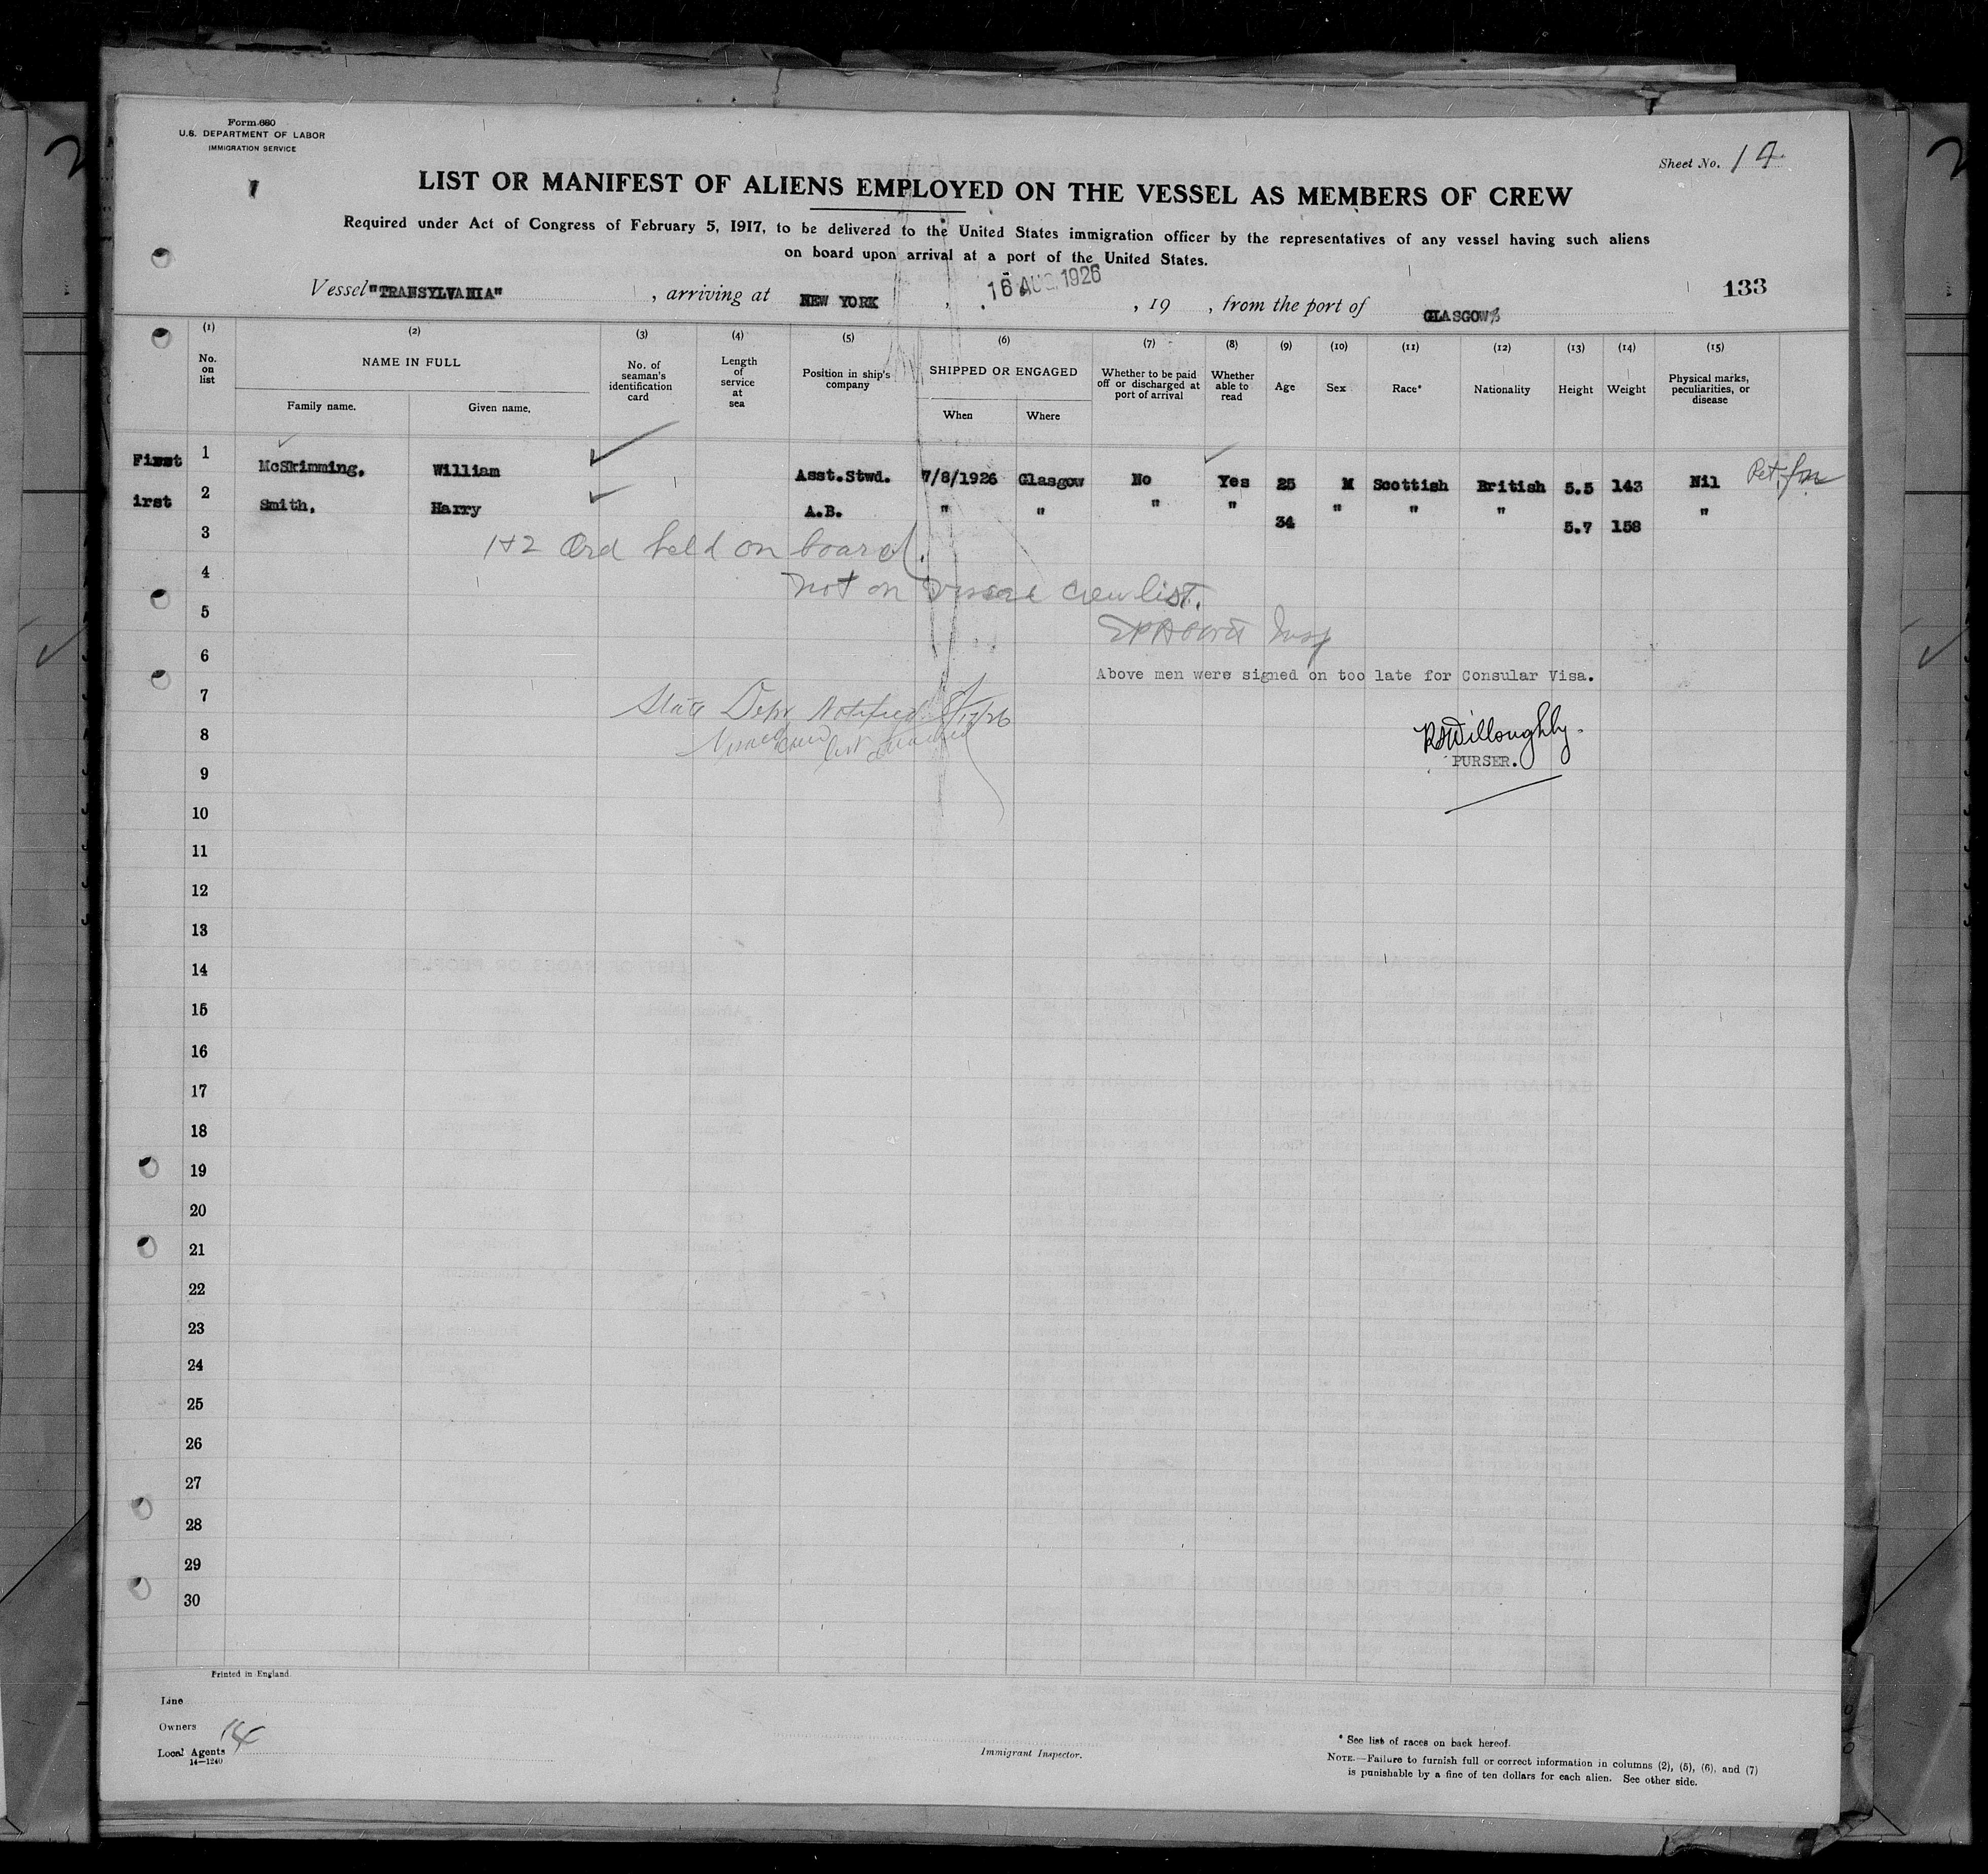 Form 680
U.S. DEPARTMENT OF LABOR
IMMIGRATION SERVICE
Sheet No. 14
LIST OR MANIFEST OF ALIENS EMPLOYED ON THE VESSEL AS MEMBERS OF CREW
Required under Act of Congress of February 5, 1917, to be delivered to the United States immigration officer by the representatives of any vessel having such aliens
on board upon arrival at a port of the United States.
Vessel "TRANSYLVANIA", arriving at NEW YORK, 16 AUG 1926, 19 , from the port of GLASGOW
133
(1) (2) (3) (4) (5) (6) (7) (8) (9) (10) (11) (12) (13) (14) (15)
No. on list
NAME IN FULL
Family name. Given name.
No. of seaman's identification card
Length of service at sea
Position in ship's company
SHIPPED OR ENGAGED
When Where
Whether to be paid off or discharged at port of arrival
Whether able to read
Age
Sex
Race*
Nationality
Height
Weight
Physical marks, peculiarities, or disease
First 1 McSkimming, William Asst.Stwd. 7/8/1926 Glasgow No Yes 25 M Scottish British 5.5 143 Nil
irst 2 Smith, Harry A.B. " " " " 34 " " " 5.7 158 "
3
1+2 Ord held on board.
4
not on crew list.
5
Insp
6
Above men were signed on too late for Consular Visa.
7
State Dept Notified 8/17/26
8
crew list
RSWilloughby.
PURSER.
9
10
11
12
13
14
15
16
17
18
19
20
21
22
23
24
25
26
27
28
29
30
Printed in England.
Line
Owners
14
Local Agents
14—1240
Immigrant Inspector.
* See list of races on back hereof.
NOTE.—Failure to furnish full or correct information in columns (2), (5), (6), and (7)
is punishable by a fine of ten dollars for each alien. See other side.